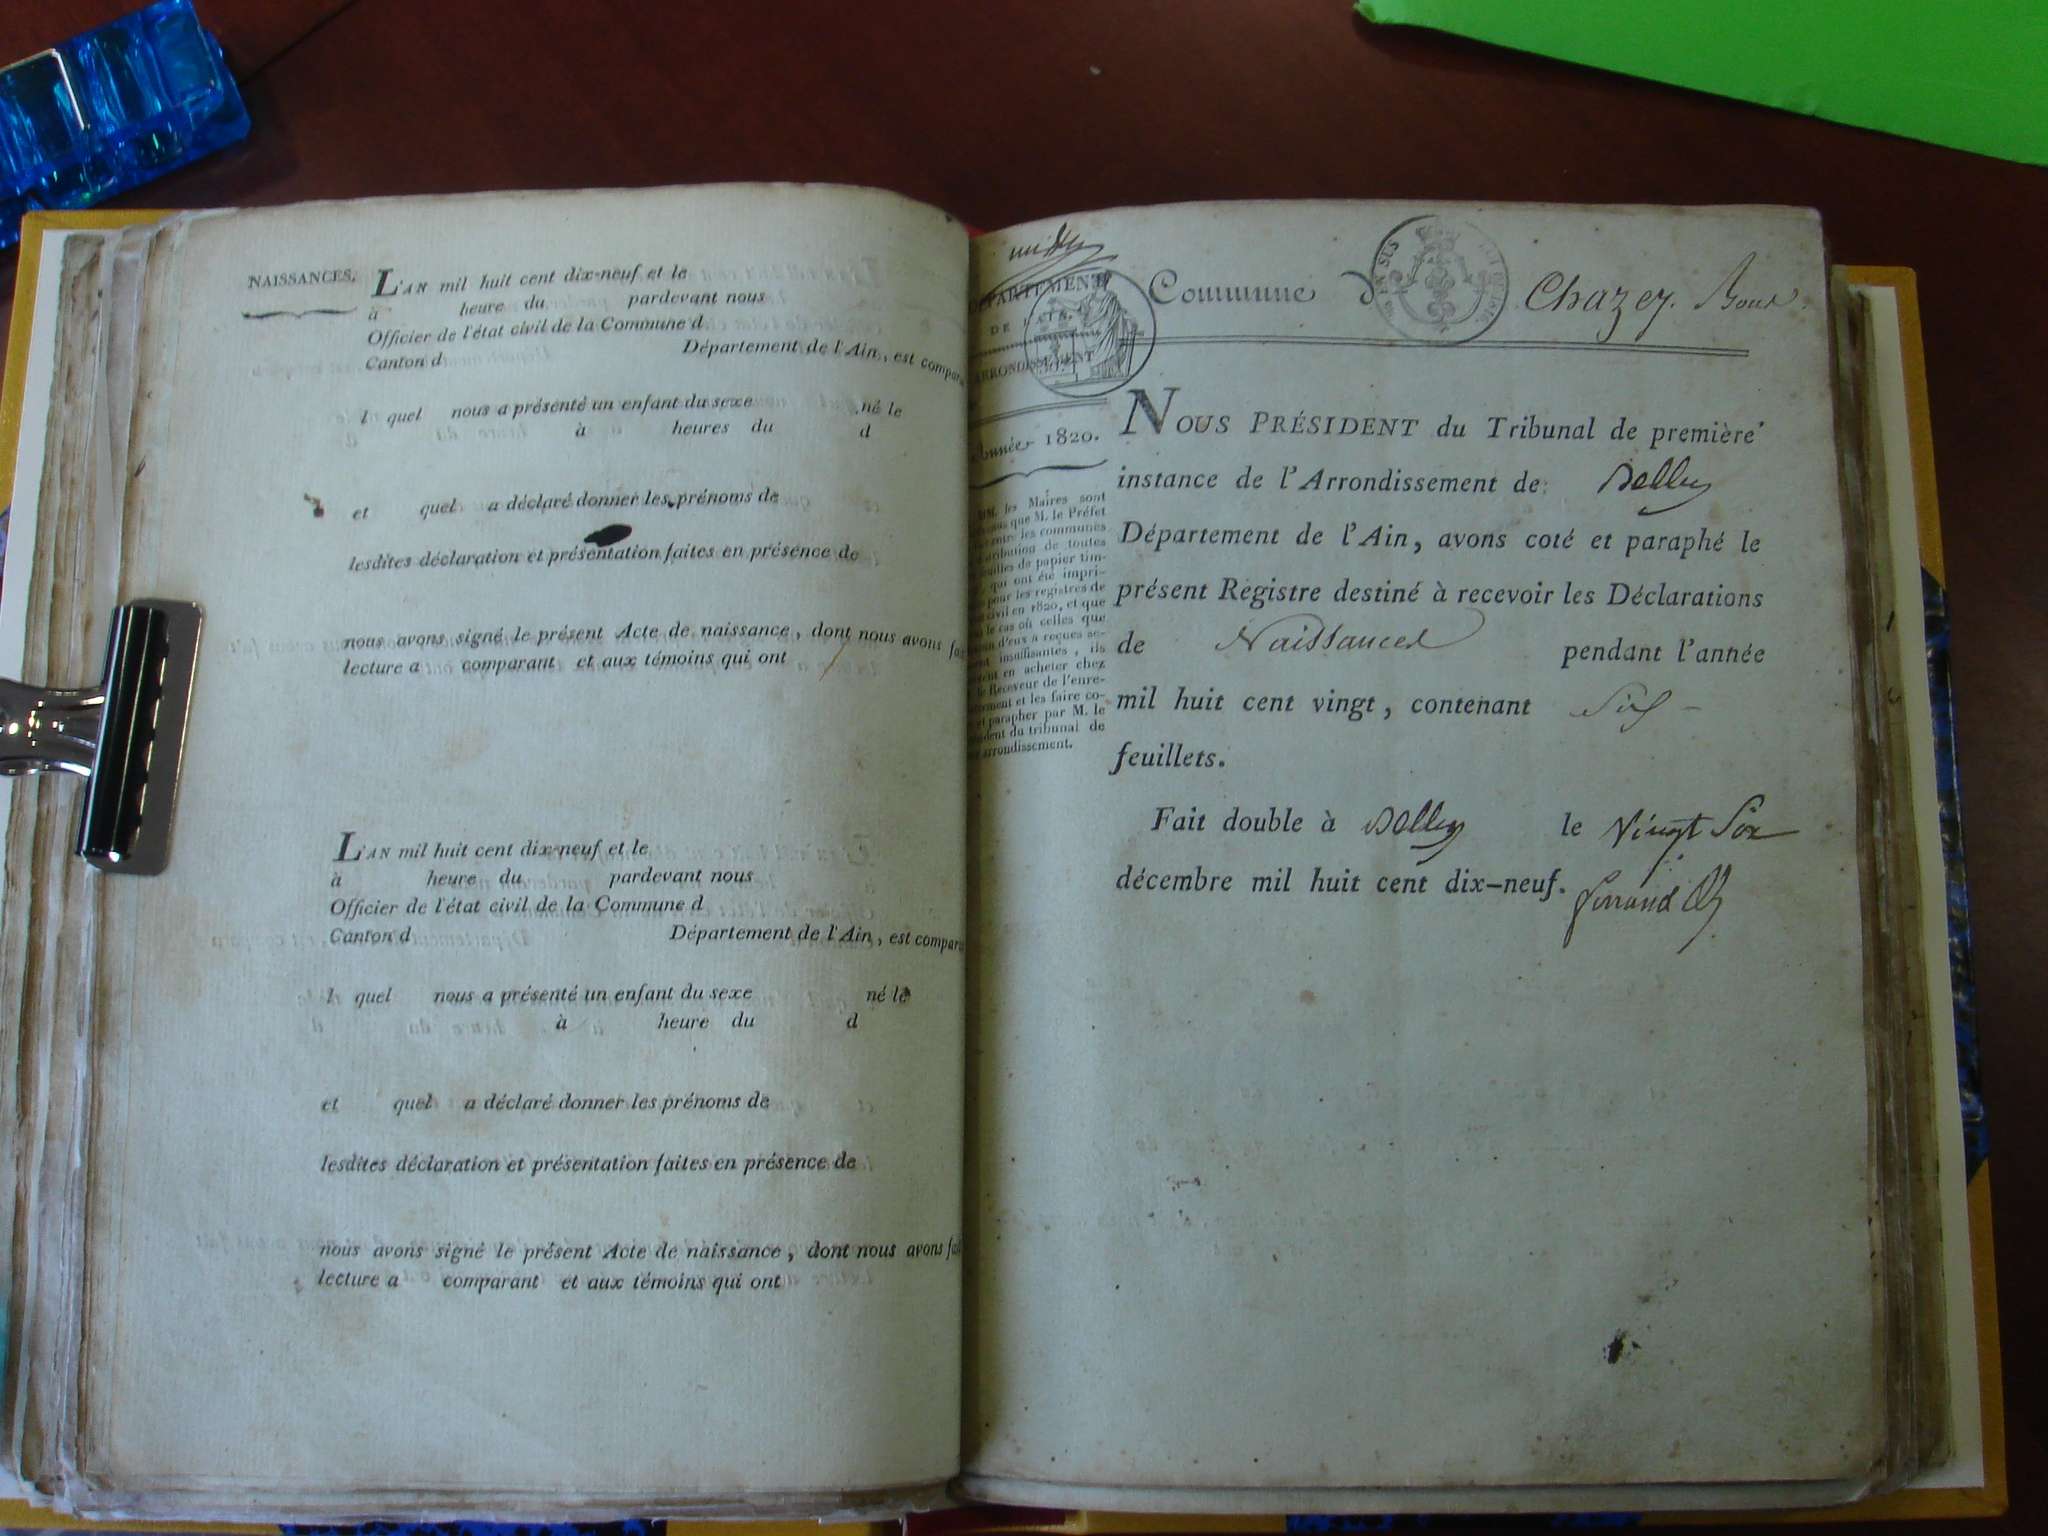 NAISSANCES.
L'AN mil huit cent dix-neuf et le
à heure du pardevant nous
Officier de l'état civil de la Commune d
Canton d Département de l'Ain, est compara
l quel nous a présenté un enfant du sexe né le
à heures du d
et quel a déclaré donner les prénoms de
lesdites déclaration et présentation faites en présence de
nous avons signé le présent Acte de naissance, dont nous avons fai
lecture a comparant et aux témoins qui ont
L'AN mil huit cent dix-neuf et le
à heure du pardevant nous
Officier de l'état civil de la Commune d
Canton d Département de l'Ain, est compara
l quel nous a présenté un enfant du sexe né le
à heure du d
et quel a déclaré donner les prénoms de
lesdites déclaration et présentation faites en présence de
nous avons signé le présent Acte de naissance, dont nous avons fai
lecture a comparant et aux témoins qui ont
DÉPARTEMENT
DE L'AIN.
ARRONDISSEMENT
Année 1820.
MM. les Maires sont
que M. le Préfet
les communes
de toutes
de papier tim-
qui ont été impri-
pour les registres de
civil en 1820, et que
le cas où celles que
d'eux a reçues se-
insuffisantes, ils
en acheter chez
le Receveur de l'enre-
et les faire co-
et parapher par M. le
du tribunal de
arrondissement.
Commune d Chazey Bons
NOUS PRÉSIDENT du Tribunal de première
instance de l'Arrondissement de Belley
Département de l'Ain, avons coté et paraphé le
présent Registre destiné à recevoir les Déclarations
de Naissances pendant l'année
mil huit cent vingt, contenant Six
feuillets.
Fait double à Belley le Vingt Six
décembre mil huit cent dix-neuf.